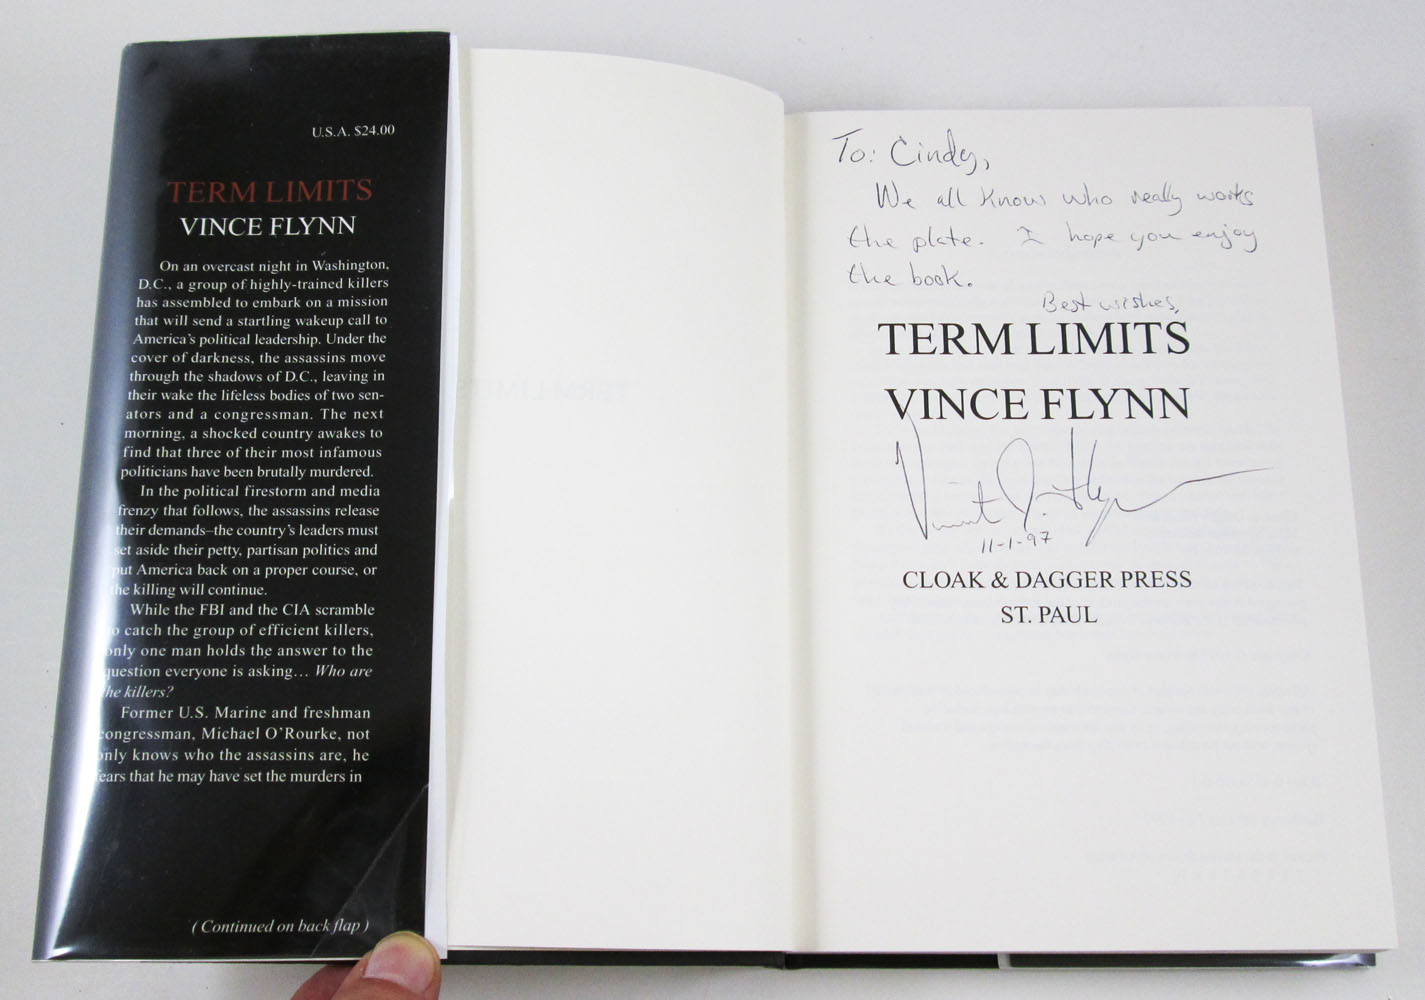 U.S.A. $24.00
TERM LIMITS
VINCE FLYNN
On an overcast night in Washington,
D.C., a group of highly-trained killers
has assembled to embark on a mission
that will send a startling wakeup call to
America's political leadership. Under the
cover of darkness, the assassins move
through the shadows of D.C., leaving in
their wake the lifeless bodies of two sen-
ators and a congressman. The next
morning, a shocked country awakes to
find that three of their most infamous
politicians have been brutally murdered.
In the political firestorm and media
frenzy that follows, the assassins release
their demands–the country's leaders must
set aside their petty, partisan politics and
put America back on a proper course, or
the killing will continue.
While the FBI and the CIA scramble
to catch the group of efficient killers,
only one man holds the answer to the
question everyone is asking... Who are
the killers?
Former U.S. Marine and freshman
congressman, Michael O'Rourke, not
only knows who the assassins are, he
fears that he may have set the murders in
(Continued on back flap)
To: Cindy,
We all know who really works
the plate. I hope you enjoy
the book.
Best wishes,
TERM LIMITS
VINCE FLYNN
Vincent J. Flynn
11-1-97
CLOAK & DAGGER PRESS
ST. PAUL